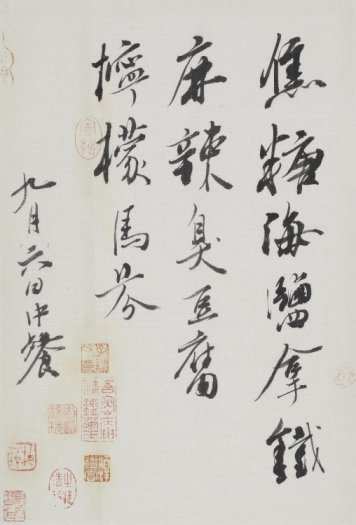 焦糖海鹽拿鐵
麻辣臭豆腐
檸檬馬芬
九月六日中餐